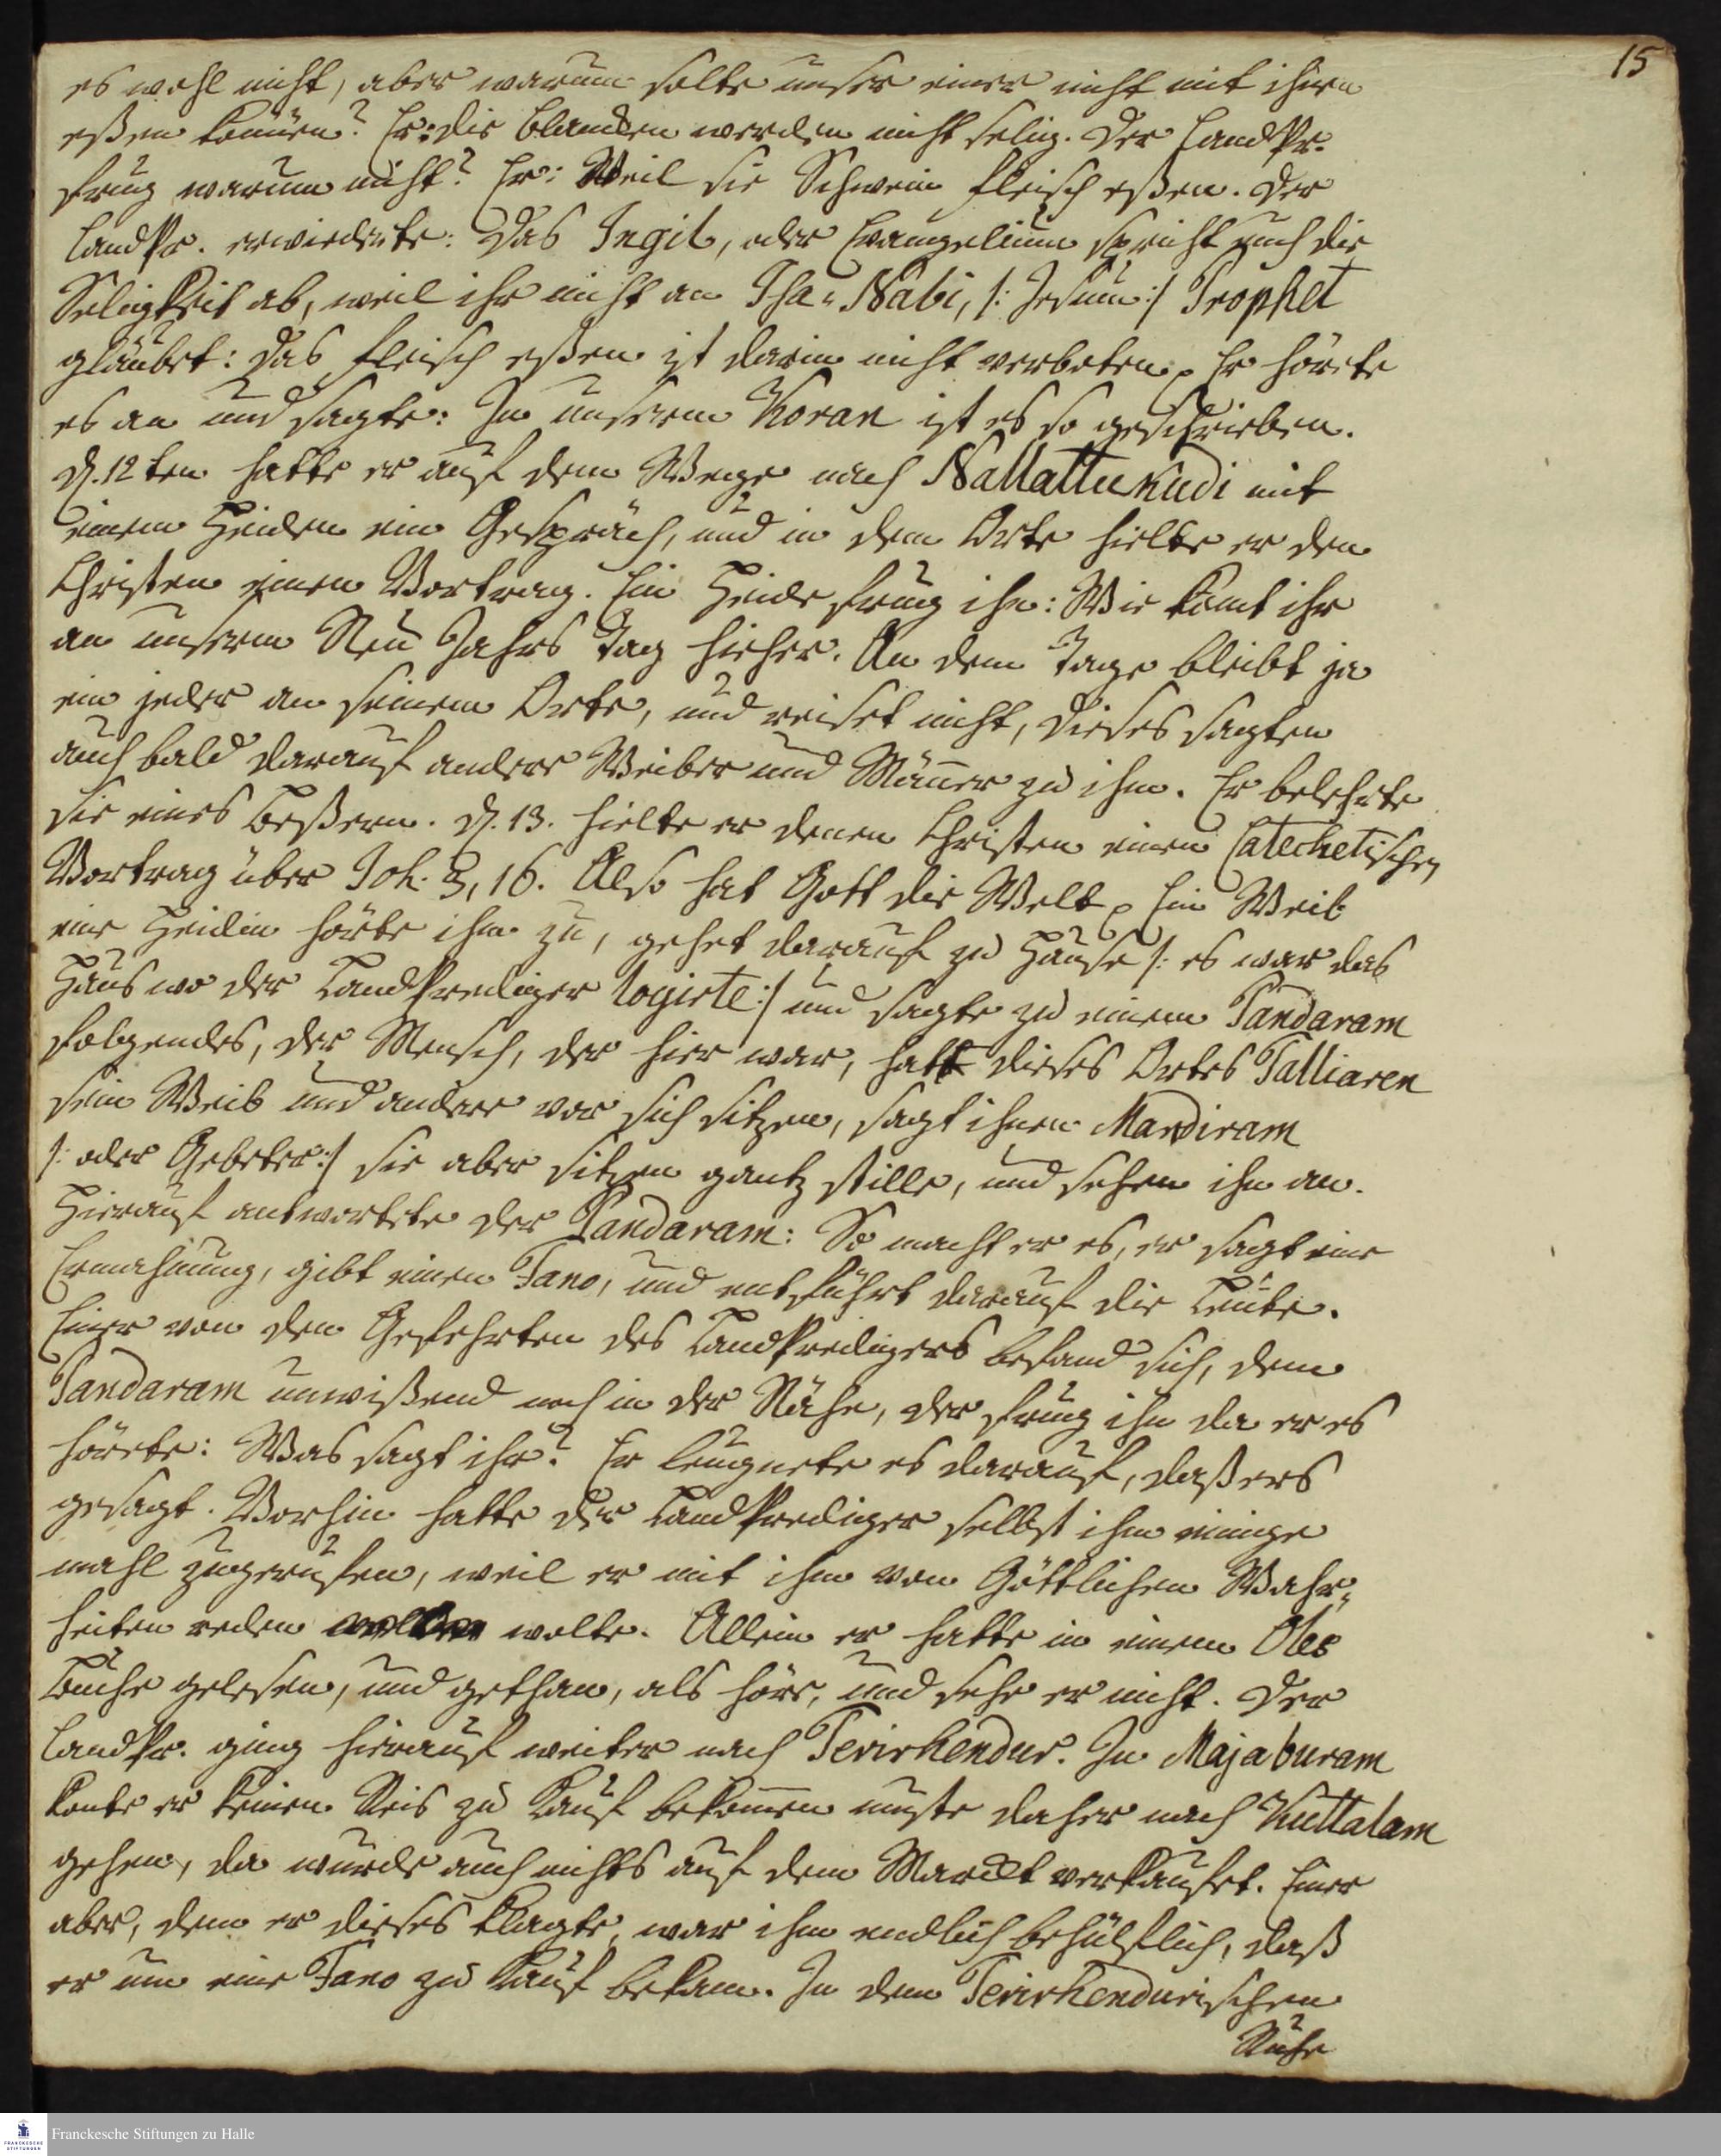 15
es wohl nicht, aber warum solte unser einer nicht mit ihnen
eßen können? Er: die Blanden werden nicht selig. Der LandPr.
frug warum nicht? Er: Weil sie Schwein fleisch eßen. Der
LandPr. erwiederte: Das Ingil, oder Evangelium spricht euch die
Seligkeit ab, weil ihr nicht an Isa-Nabi, /: Jesum :/ Prophet
gläubet: Das fleisch eßen ist darin nicht verboten. Er hörete
es an und sagte: In unserm Koran ist es so geschrieben.
D. 12ten hatte er auf dem Wege nach Nallattukudi mit
einem Heiden ein Gespräch, und in dem Orte hielte er den
Christen einen Vortrag. Ein Heide frug ihn: Wie komt ihr
an unserm Neu Jahrs Tag hieher. An dem Tage bleibt ja
ein jeder an seinem Orte, und reiset nicht, dieses sagten
auch bald darauf andere Weiber und Männer zu ihm. Er belehrte
sie eines Beßern. D. 13. hielte er denen Christen einen Catechetischen
Vortrag über Joh. 3, 16. Also hat Gott die Welt. Ein Weib
eine Heidin hörte ihm zu, gehet darauf zu Hause /: es war das
Haus wo der LandPrediger logirte :/ und sagte zu einem Pandaram
folgendes, der Mensch, der hier war, hatt dieses Ortes Talliaren
sein Weib und andere vor sich sitzen, sagt ihnen Mandiram
/: oder Gebeter :/ sie aber sitzen gantz stille, und sehen ihn an.
Hierauf antwortete der Pandaram: So macht er es, er sagt eine
Ermahnung, gibt einen Fano, und entführt darauf die Leute.
Einer von den Gefehrten des LandPredigers befand sich, dem
Pandaram unwißend noch in der Nähe, der frug ihn da er es
hörete: Was sagt ihr? Er leugnete es darauf, daß ers
gesagt. Vorhin hatte der LandPrediger selbst ihm einige
mahl zugerufen, weil er mit ihm von Göttlichen Wahr-
heiten reden wolte. Allein er hatte in einem Oles
Buche gelesen, und gethan, als höre, und sehe er nicht. Der
LandPr. ging hierauf weiter nach Perirhendur. In Majaburam
konte er keinen Reis zu Kauf bekommen muste daher nach Kuttalam
gehen, da wurde auch nichts auf dem Marckt verkaufet. Einer
aber, dem er dieses klagte, war ihm endlich behülflich, daß
er um eine Fano zu Kauf bekam. In dem Perirhendurischen
Ruhe
Franckesche Stiftungen zu Halle
FRANCKESCHE
STIFTUNGEN